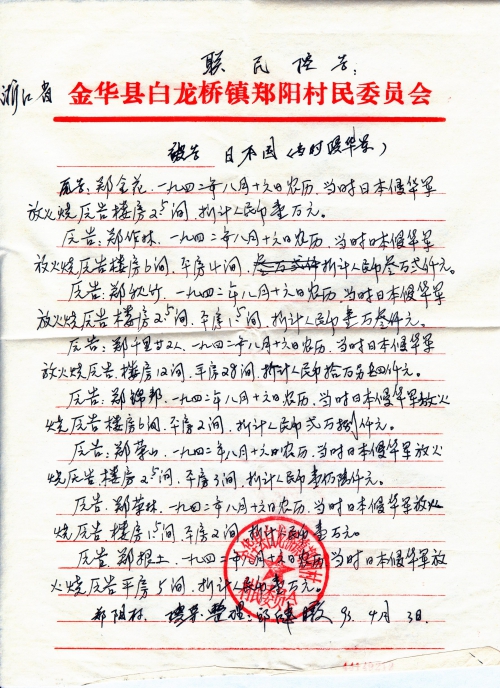 联民控告:
浙江省 金华县白龙桥镇郑阳村民委员会
被告 日本国(当时侵华军)
原告:郑金花,一九四二年八月十六日农历,当时日本侵华军
放火烧原告楼房2.5间,折计人民币壹万元。
原告:郑作林,一九四二年八月十六日农历,当时日本侵华军
放火烧原告楼房6间,平房4间,折计人民币叁万弍仟元。
原告:郑秋竹,一九四二年八月十六日农历,当时日本侵华军
放火烧原告楼房2.5间,平房1.5间,折计人民币壹万叁仟元。
原告:郑千里廿2人,一九四二年八月十六日农历,当时日本侵华军
放火烧原告楼房12间,平房28间,折计人民币拾万 仟元。
原告:郑锦邦,一九四二年八月十六日农历,当时日本侵华军放火
烧原告楼房6间,平房2间,折计人民币弍万捌仟元。
原告:郑 山,一九四二年八月十六日农历,当时日本侵华军放火
烧原告楼房2.5间,平房3间,折计人民币壹万陆仟元。
原告,郑荣林,一九四二年八月十六日农历,当时日本侵华军放火
烧原告楼房1.5间,平房2间,折计人民币壹万元。
原告,郑根土,一九四二年八月十六日农历,当时日本侵华军放
火烧原告平房5间,折计人民币壹万元。
郑阳村, 整理: 95.4月3日.